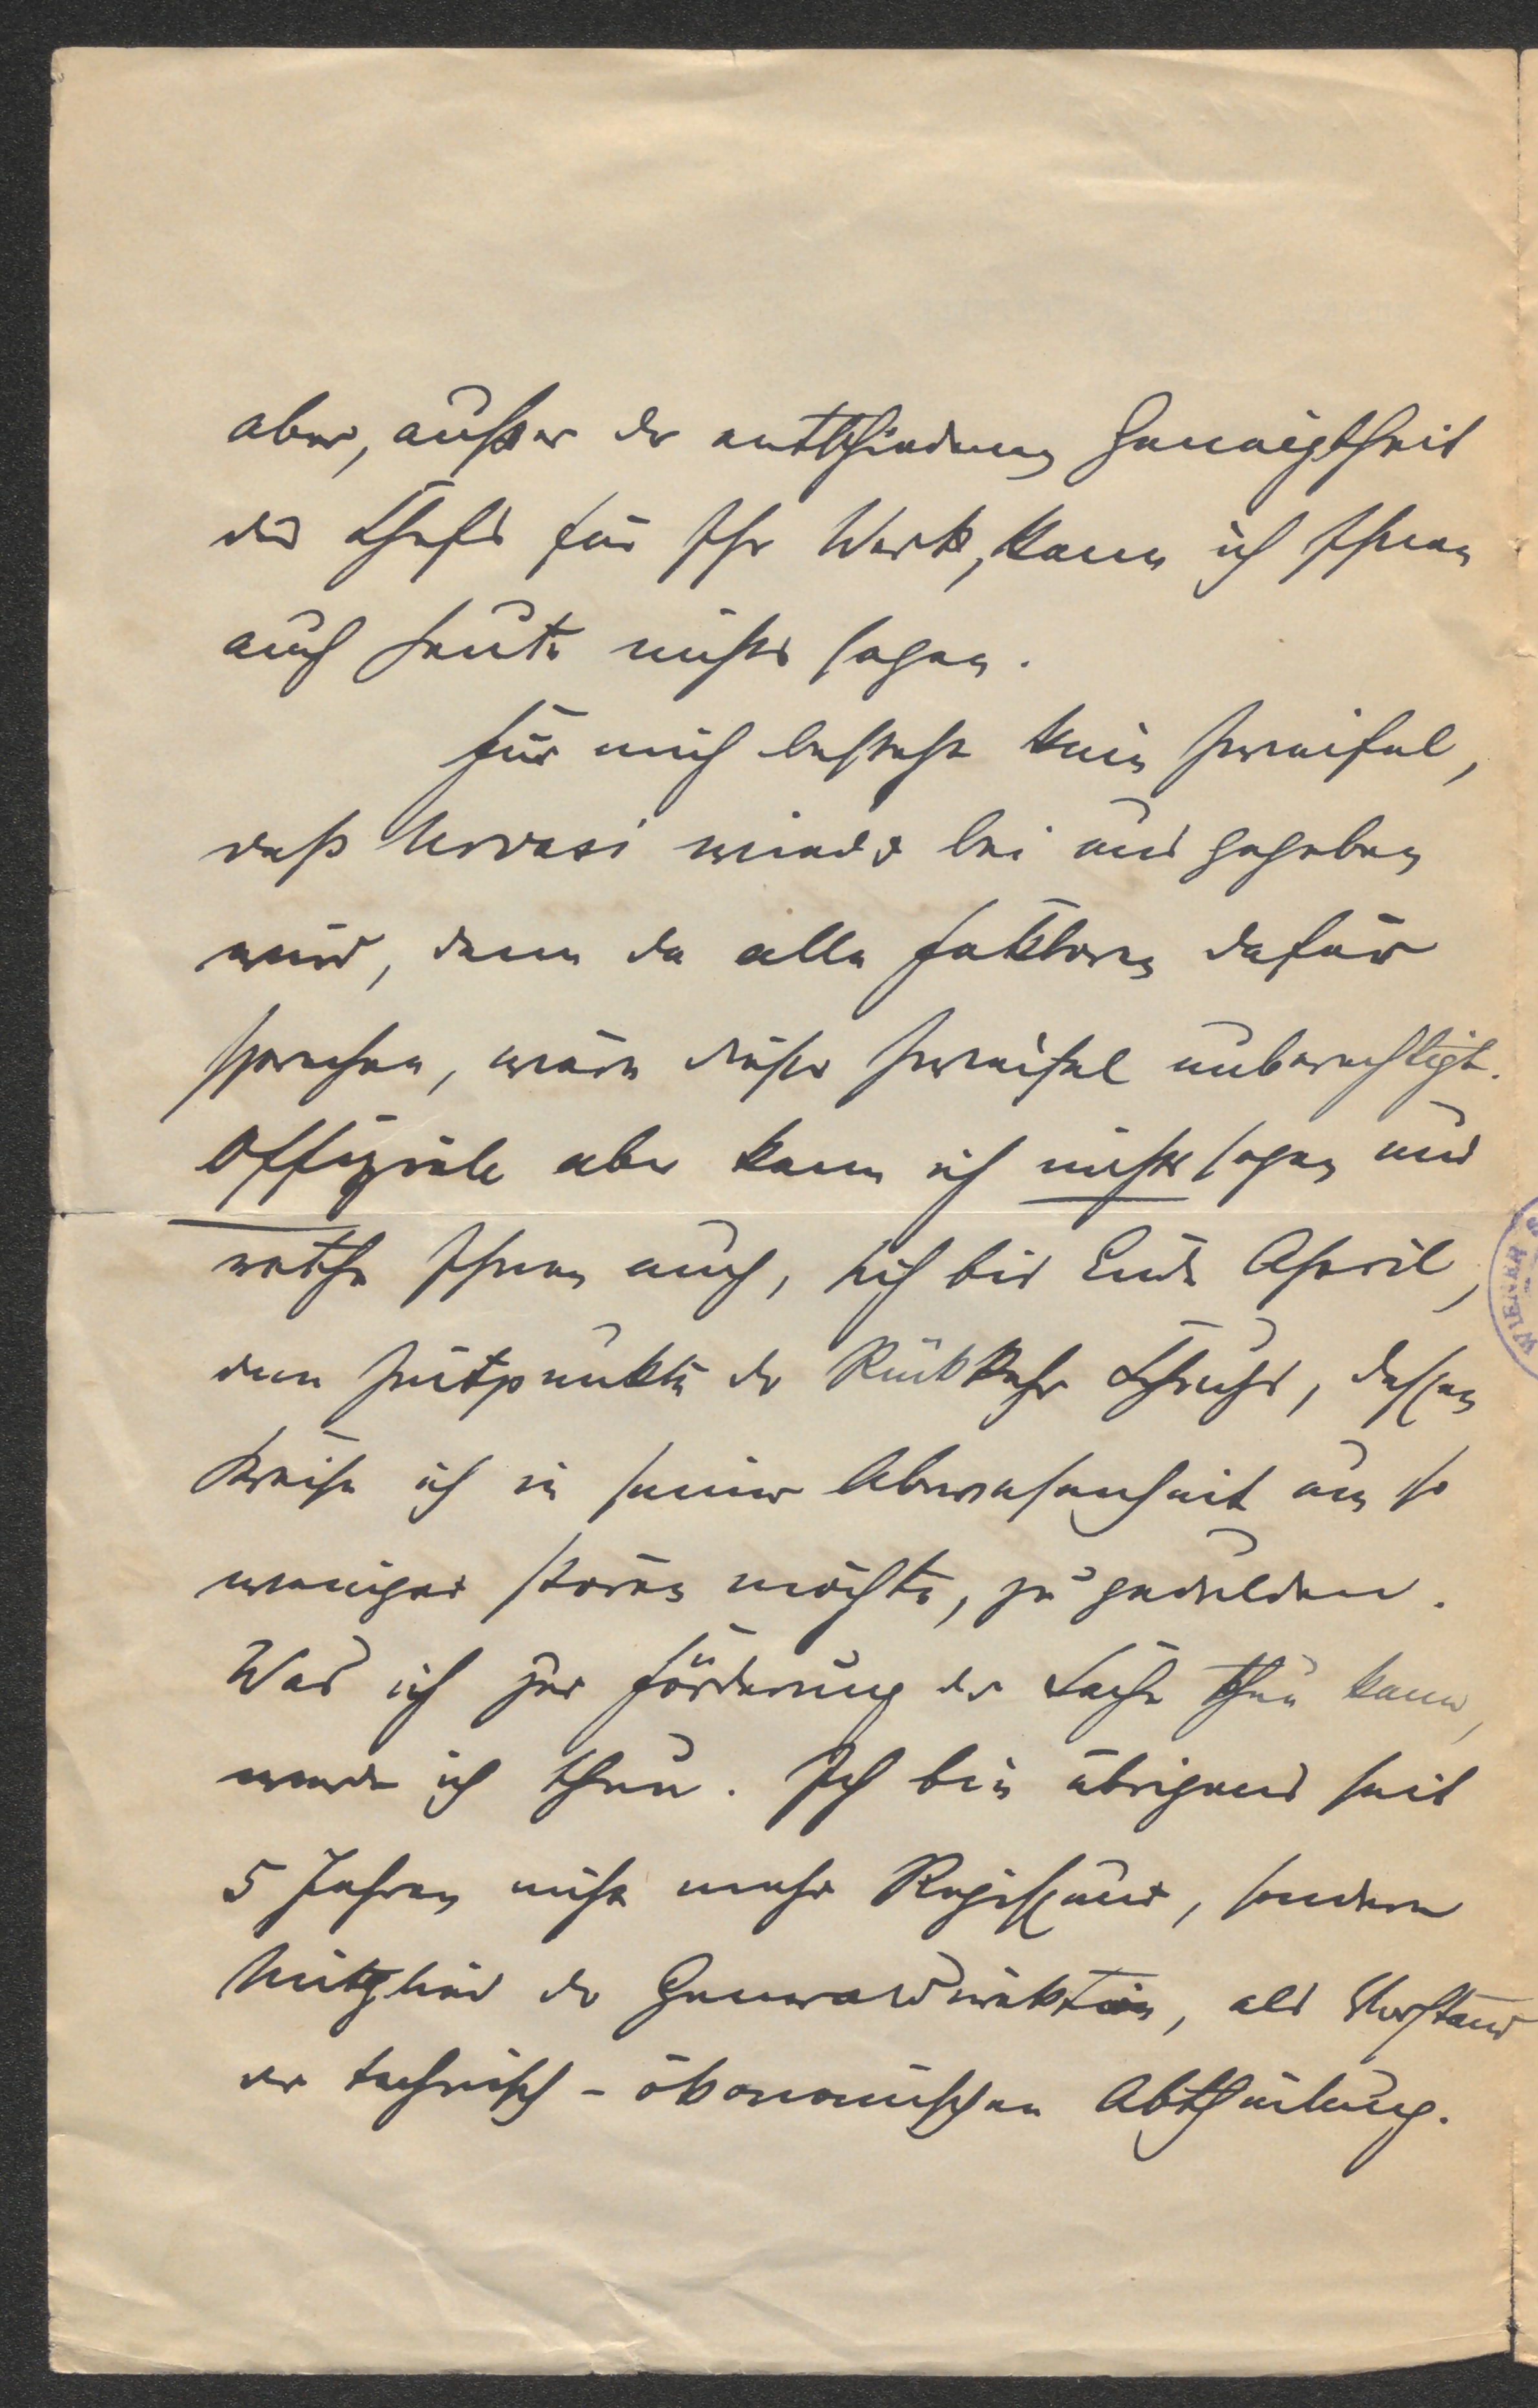 aber, außer der entschiedenen Geneigtheit
des Chefs für Ihr Werk, kann ich Ihnen
auch heute nichts sagen.
Für mich besteht kein Zweifel,
daß Urvasi wieder bei uns gegeben
wird, denn da alle Faktoren dafür
sprechen, wäre dieser Zweifel unberechtigt.
Offiziele aber kann ich nichts sagen und
rathe Ihnen auch, sich bis Ende April,
dem Zeitpunkte der Rückkehr Schuchs, dessen
Kreise ich in seiner Abwesenheit um so
weniger stören möchte, zu gedulden.
Was ich zur Förderung der Sache thun kann,
werde ich thun. Ich bin übrigens seit
5 Jahren nicht mehr Regisseur, sondern
Mitglied der Generaldirektion, als Vorstand
der technisch-ökonomischen Abtheilung.
WIENER